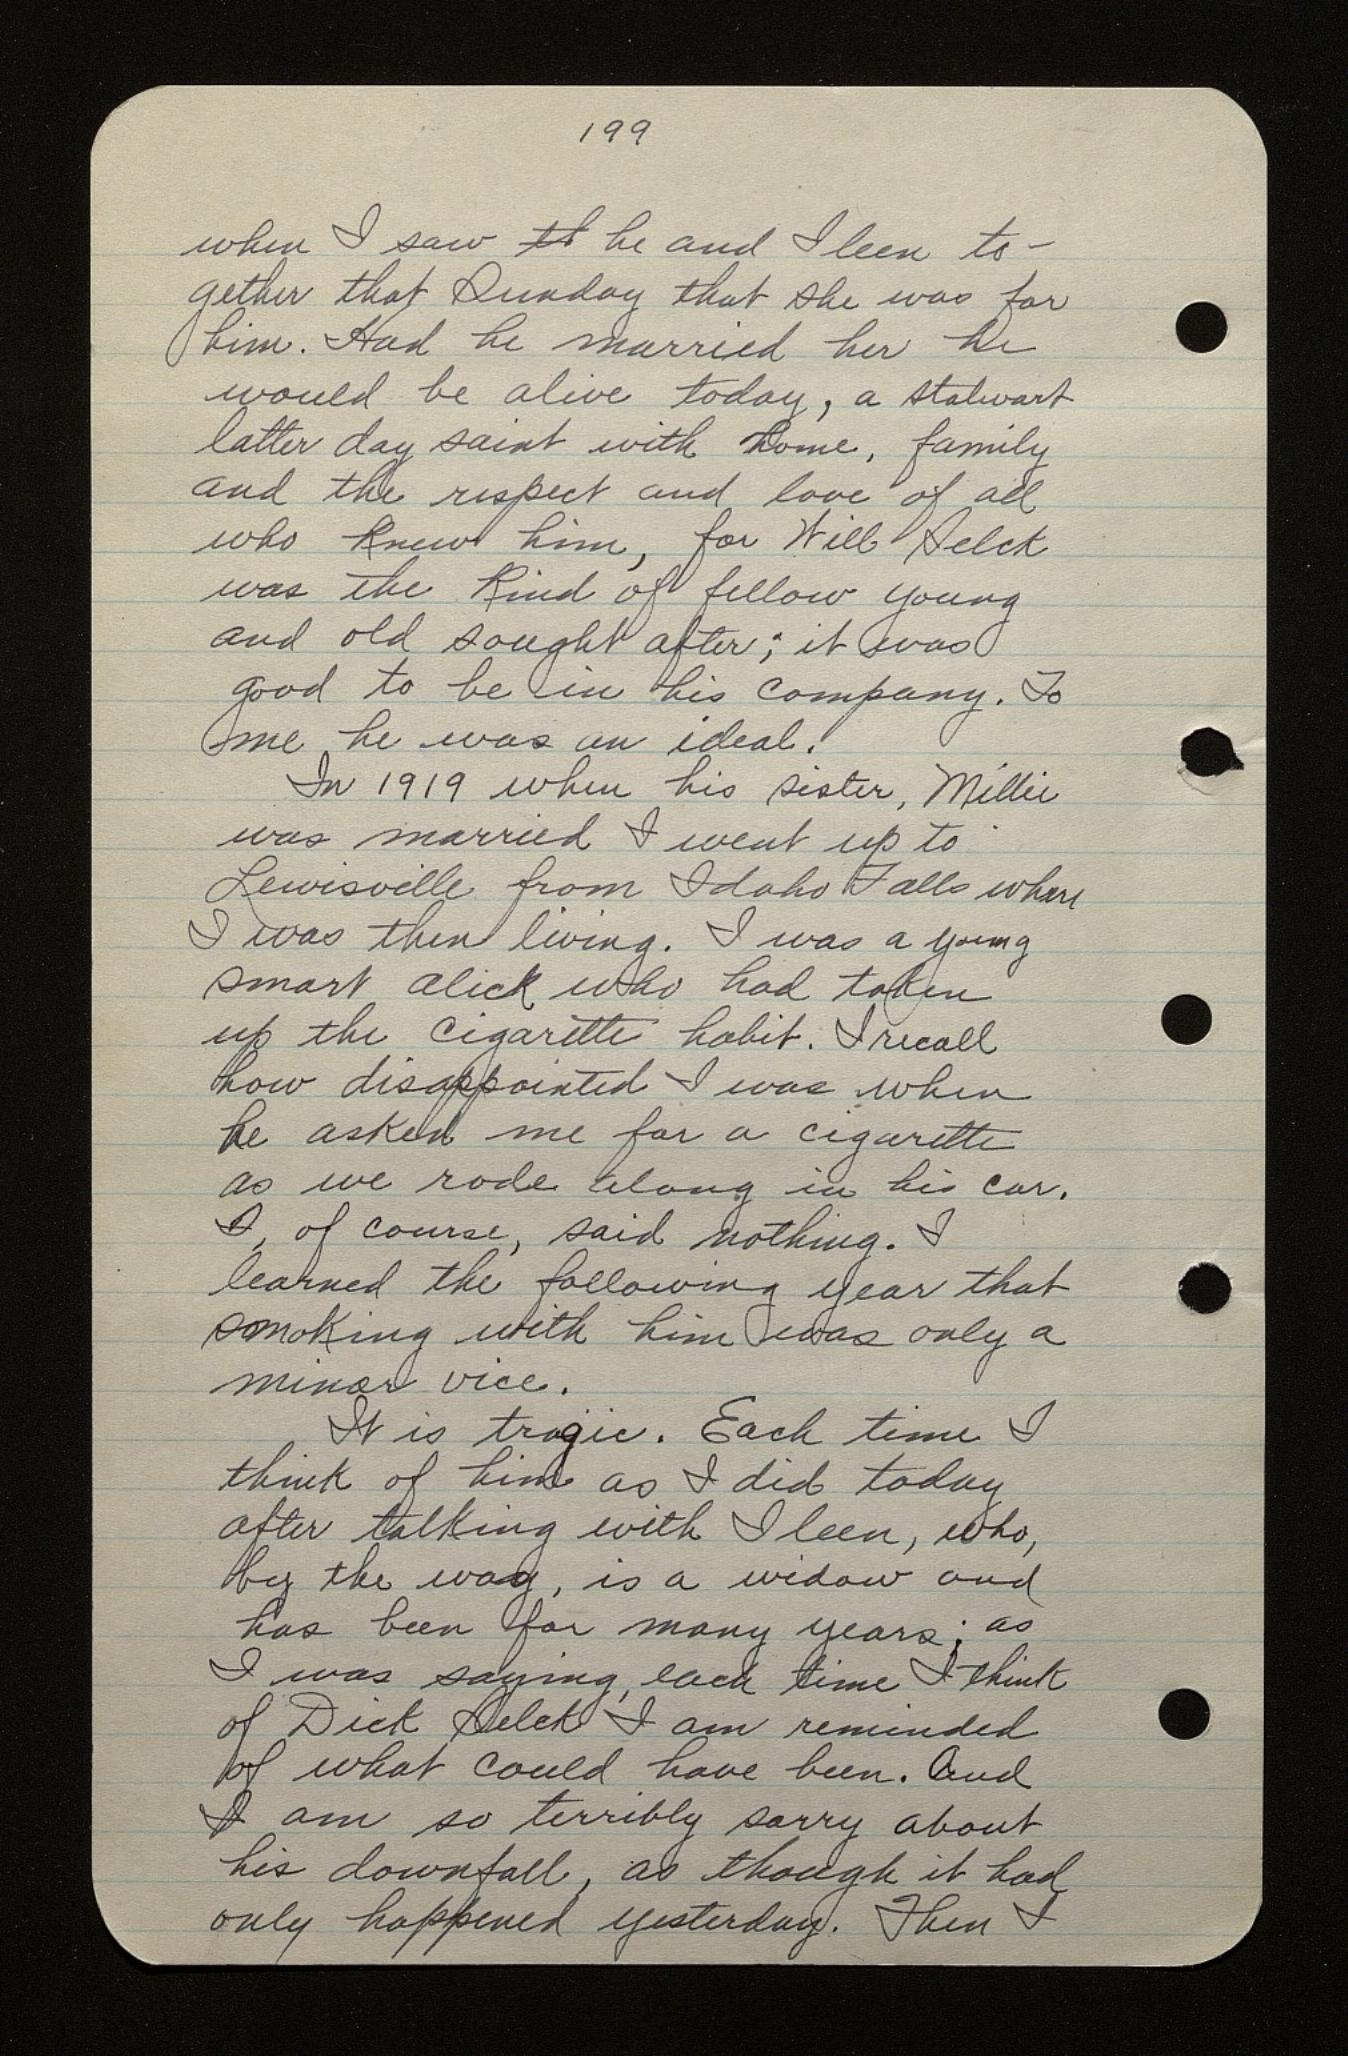 199
when I saw th he and Ileen to-
gether that Sunday that she was for
him. Had he married her he
would be alive today, a stalwart
latter day saint with home, family
and the respect and love of all
who knew him, for Will Selck
was the kind of fellow young
and old sought after; it was
good to be in his company. To
me he was an ideal.
In 1919 when his sister, Millie
was married I went up to
Lewisville from Idaho Falls where
I was then living. I was a young
smart alick who had taken
up the cigarette habit. I recall
how disappointed I was when
he asked me for a cigarette
as we rode along in his car.
I, of course, said nothing. I
learned the following year that
smoking with him was only a
minor vice.
It is tragic. Each time I
think of him as I did today
after talking with Ileen, who,
by the way, is a widow and
has been for many years; as
I was saying, each time I think
of Dick Selck I am reminded
of what could have been. And
I am so terribly sorry about
his downfall, as though it had
only happened yesterday. Then I